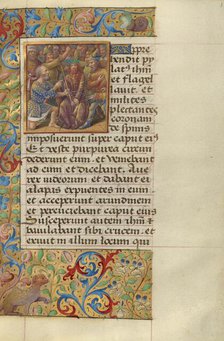 Appre
hendit py
latus ihm
et flagel
lauit. et
milites
plectantes
coronam
de spinis
imposuerunt super caput eius
Et veste purpurea circum
dederunt eum. et veniebant
ad eum et dicebant. Aue
rex iudeorum et dabant ei
alapas expuentes in eum et
accipiebant arundinem et
percuciebant caput eius
Susceperunt autem ihm et
baiulabant sibi crucem. et
exiuit in illum locum qui